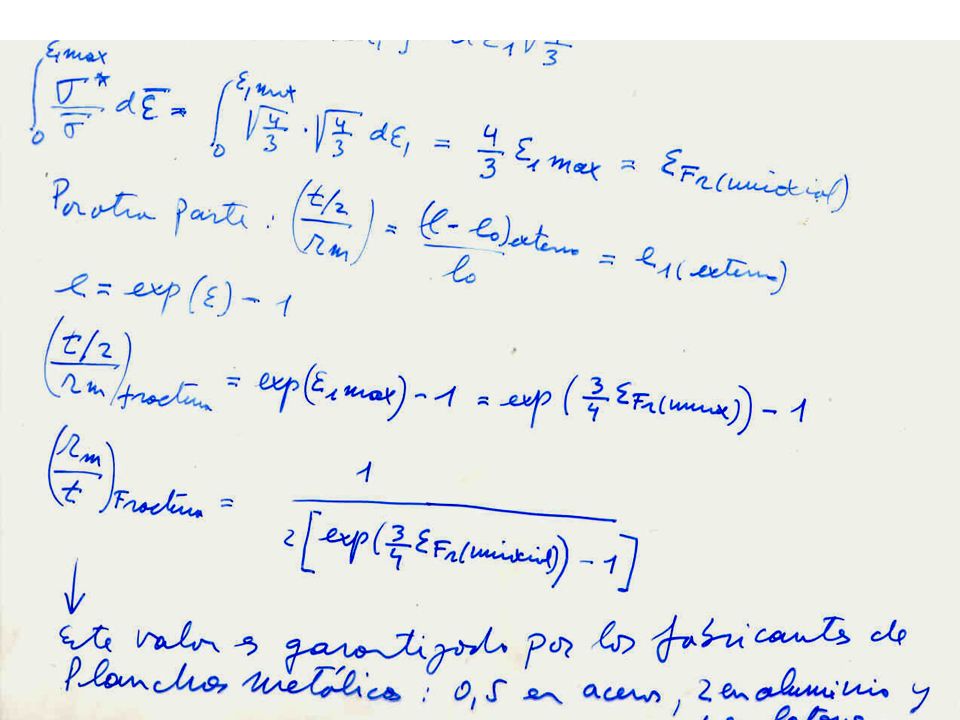 dε₁√4/3
∫₀^ε₁max σ*/σ̄ dε̄ = ∫₀^ε₁max √4/3 · √4/3 dε₁ = 4/3 ε₁ max = εFr(uniaxial)
Por otra parte : ((t/2)/rm) = (l - l₀)externo / l₀ = e₁(externo)
e = exp(ε) - 1
((t/2)/rm)fractura = exp(ε₁ max) - 1 = exp(3/4 εFr(uniax)) - 1
(rm/t)Fractura = 1 / 2[exp(3/4 εFr(uniaxial)) - 1]
↓
Este valor es garantizado por los fabricantes de
Planchas metálicas : 0,5 en aceros, 2 en aluminio y